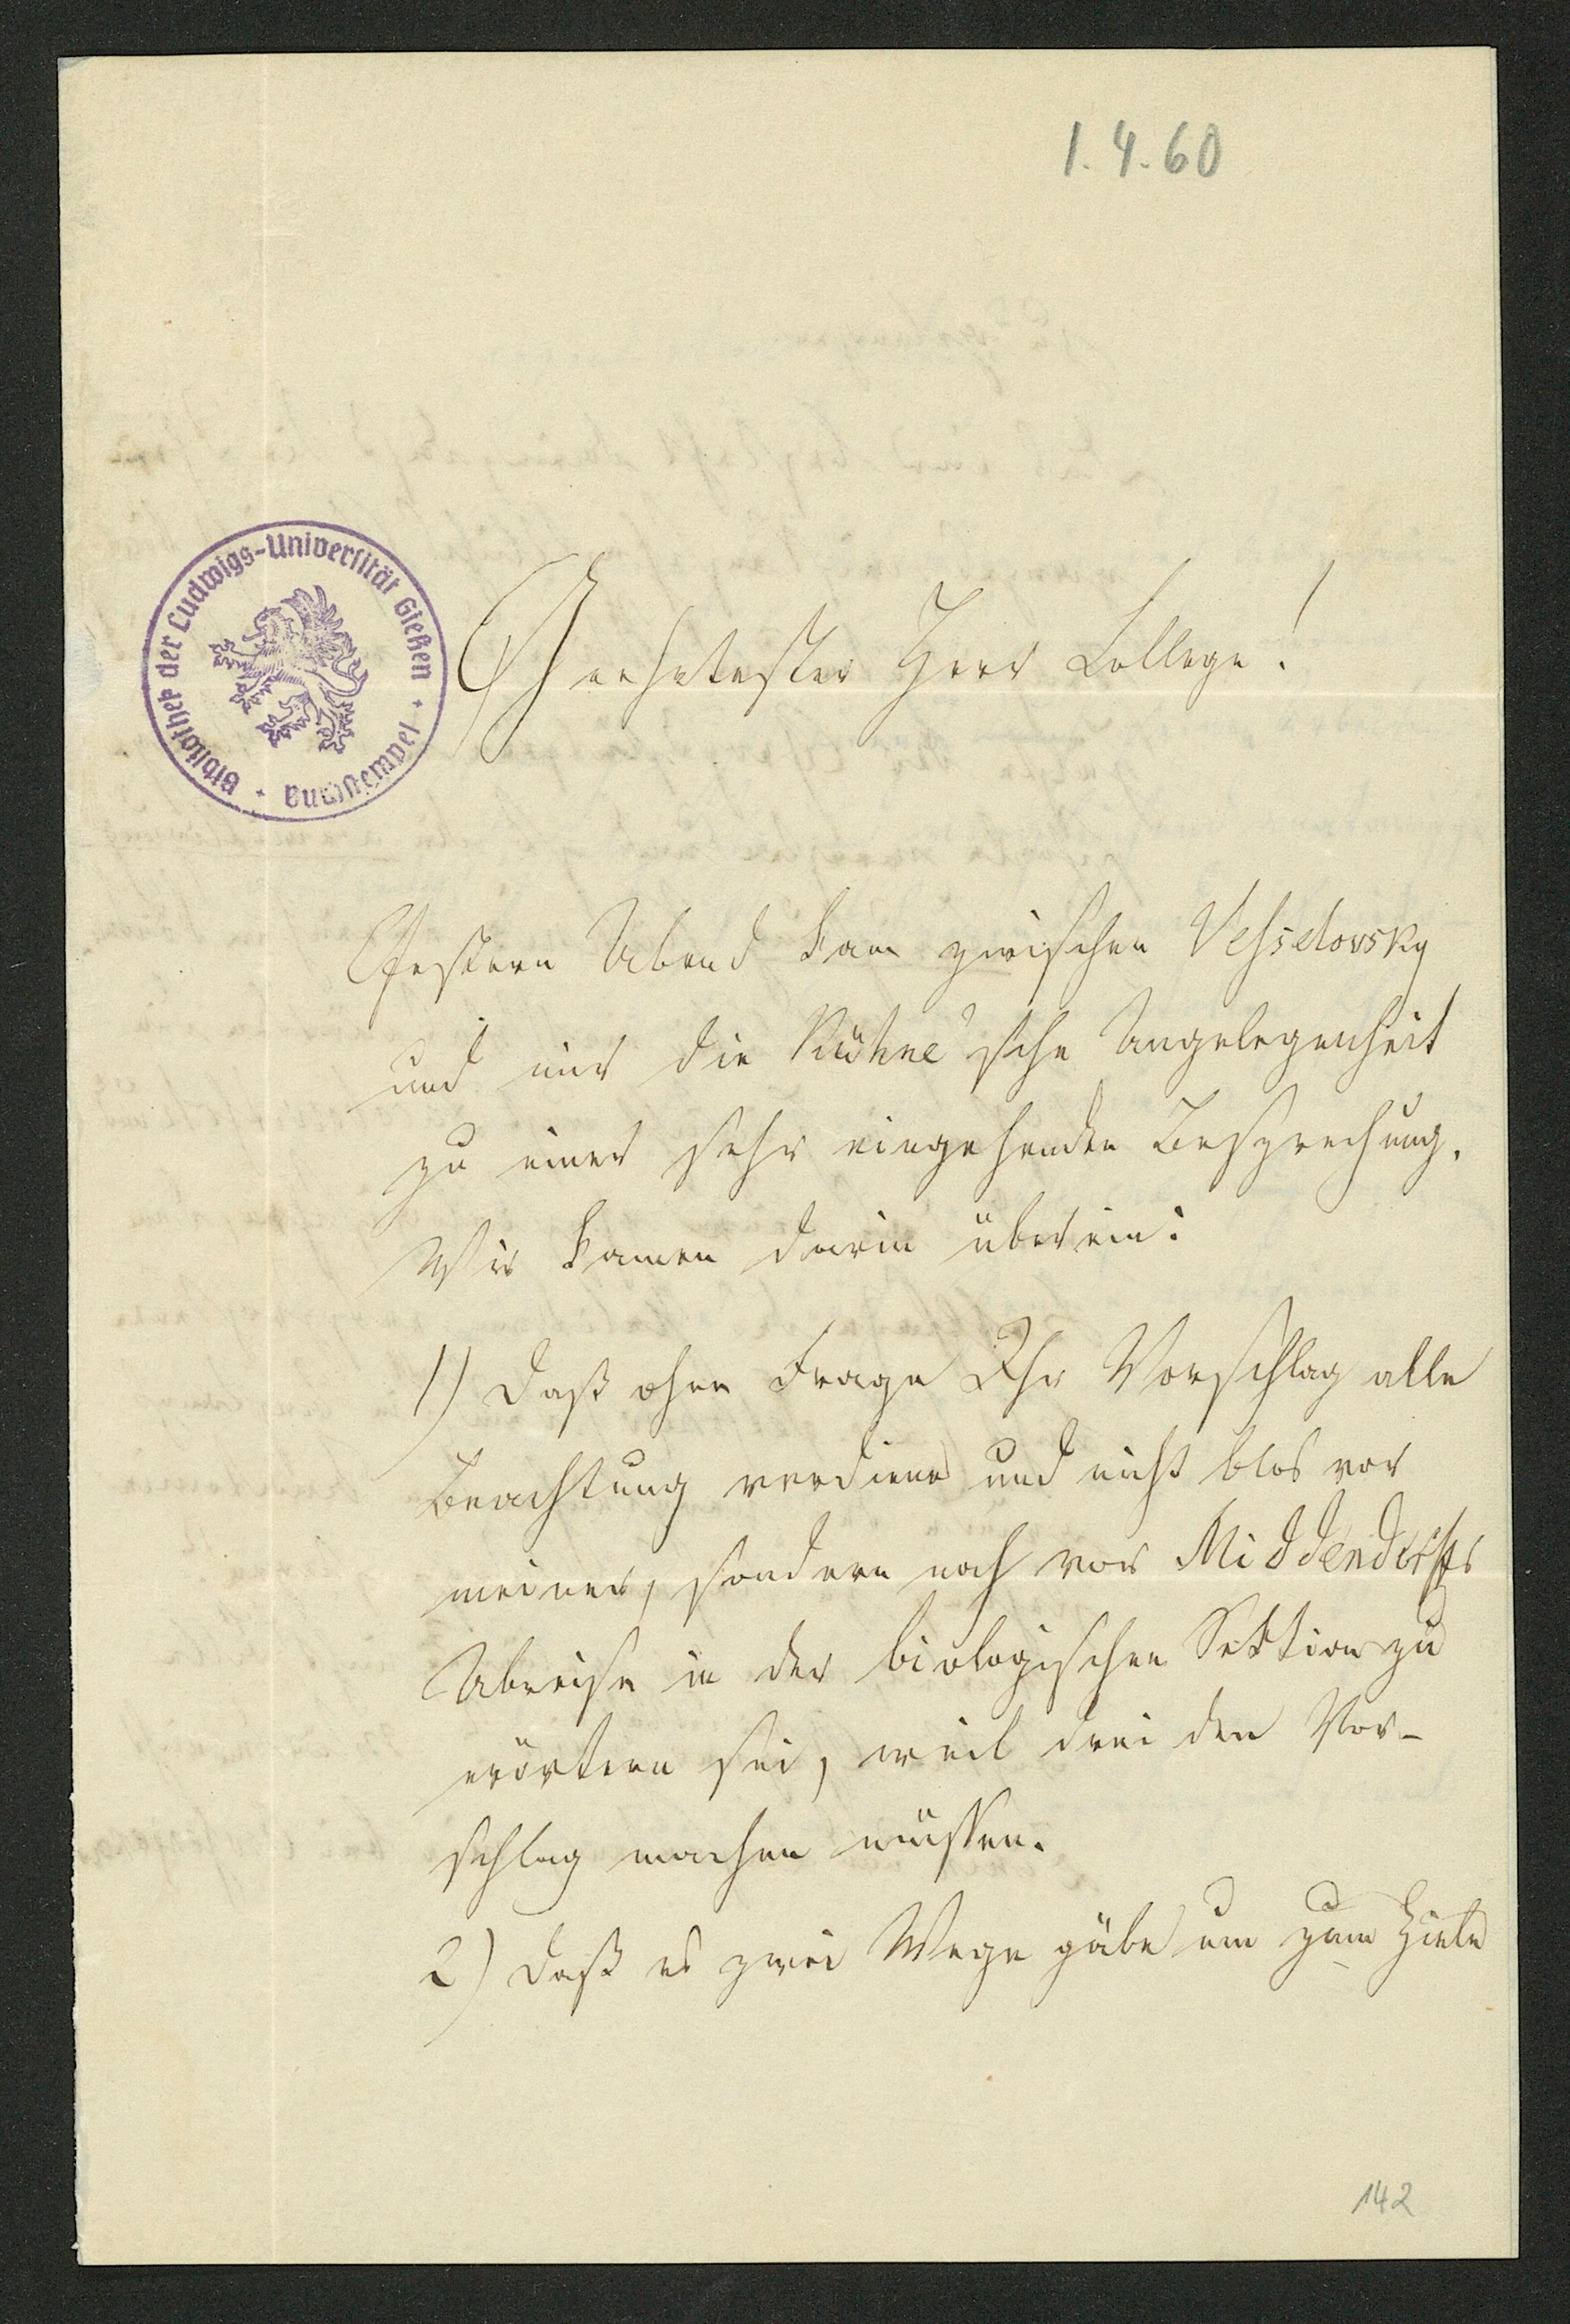 1.4.60
Bibliothek der Ludwigs-Universität Gießen + Buchstempel +
Geehrtester Herr College!
Gestern Abend kam zwischen Vesselovsky
und mir die Kühne'sche Angelegenheit
zu einer sehr eingehenden Besprechung.
Wir kamen darin überein:
1) daß ohne Frage Ihr Vorschlag alle
Beachtung verdiene und nicht blos vor
meiner, sondern noch vor Middendorffs
Abreise in der biologischen Sektion zu
erörtern sei, weil drei den Vor-
schlag machen müssen.
2) daß es zwei Wege gäbe um zum Ziele
142